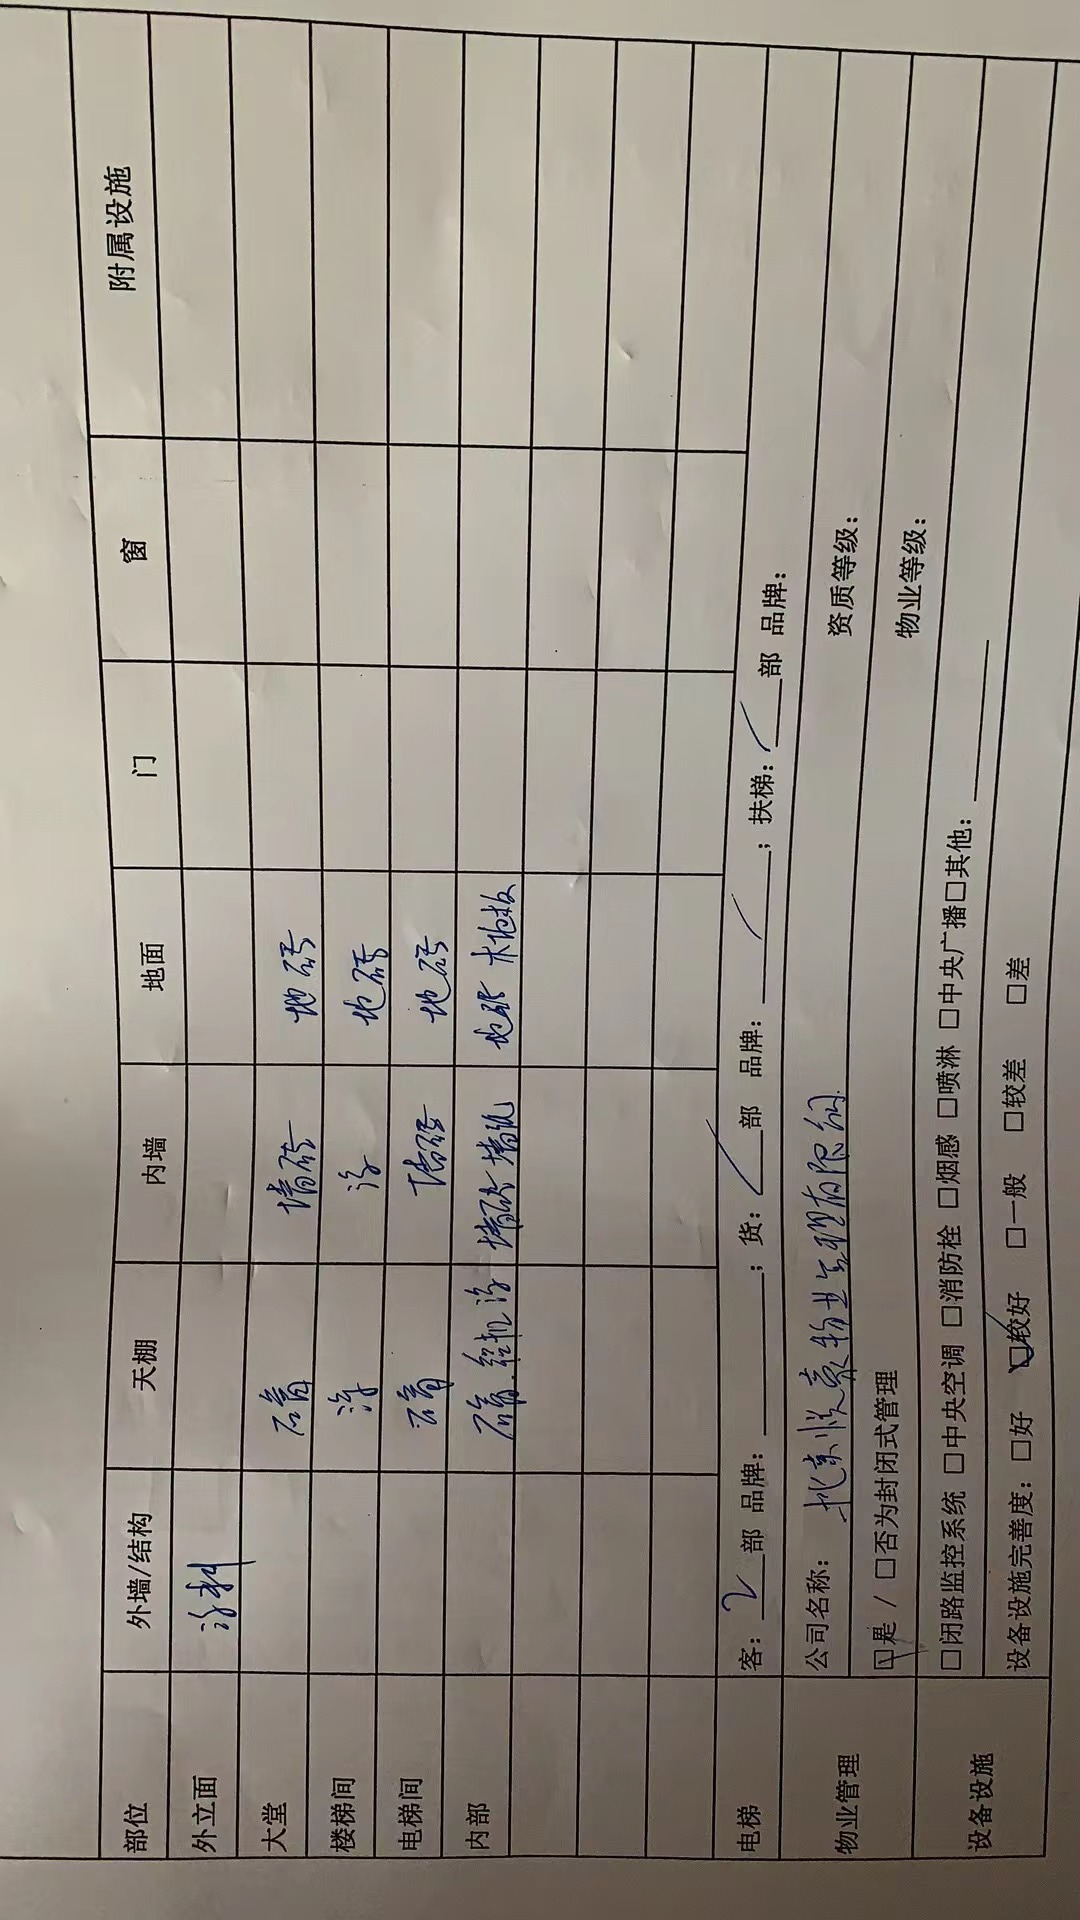 部位 外墙/结构 天棚 内墙 地面 门 窗 附属设施
外立面 涂料
大堂 石膏 墙砖 地砖
楼梯间 涂 涂 地砖
电梯间 石膏 墙砖 地砖
内部 石膏 铝扣 涂 墙砖 墙纸 地砖 木地板
电梯 客：2部 品牌：；货：/部 品牌：/；扶梯：/部 品牌：
物业管理 公司名称：北京悦豪物业管理有限公司 资质等级：
☑是 / □否为封闭式管理 物业等级：
设备设施 □闭路监控系统 □中央空调 □消防栓 □烟感 □喷淋 □中央广播□其他：
设备设施完善度：□好 ☑较好 □一般 □较差 □差